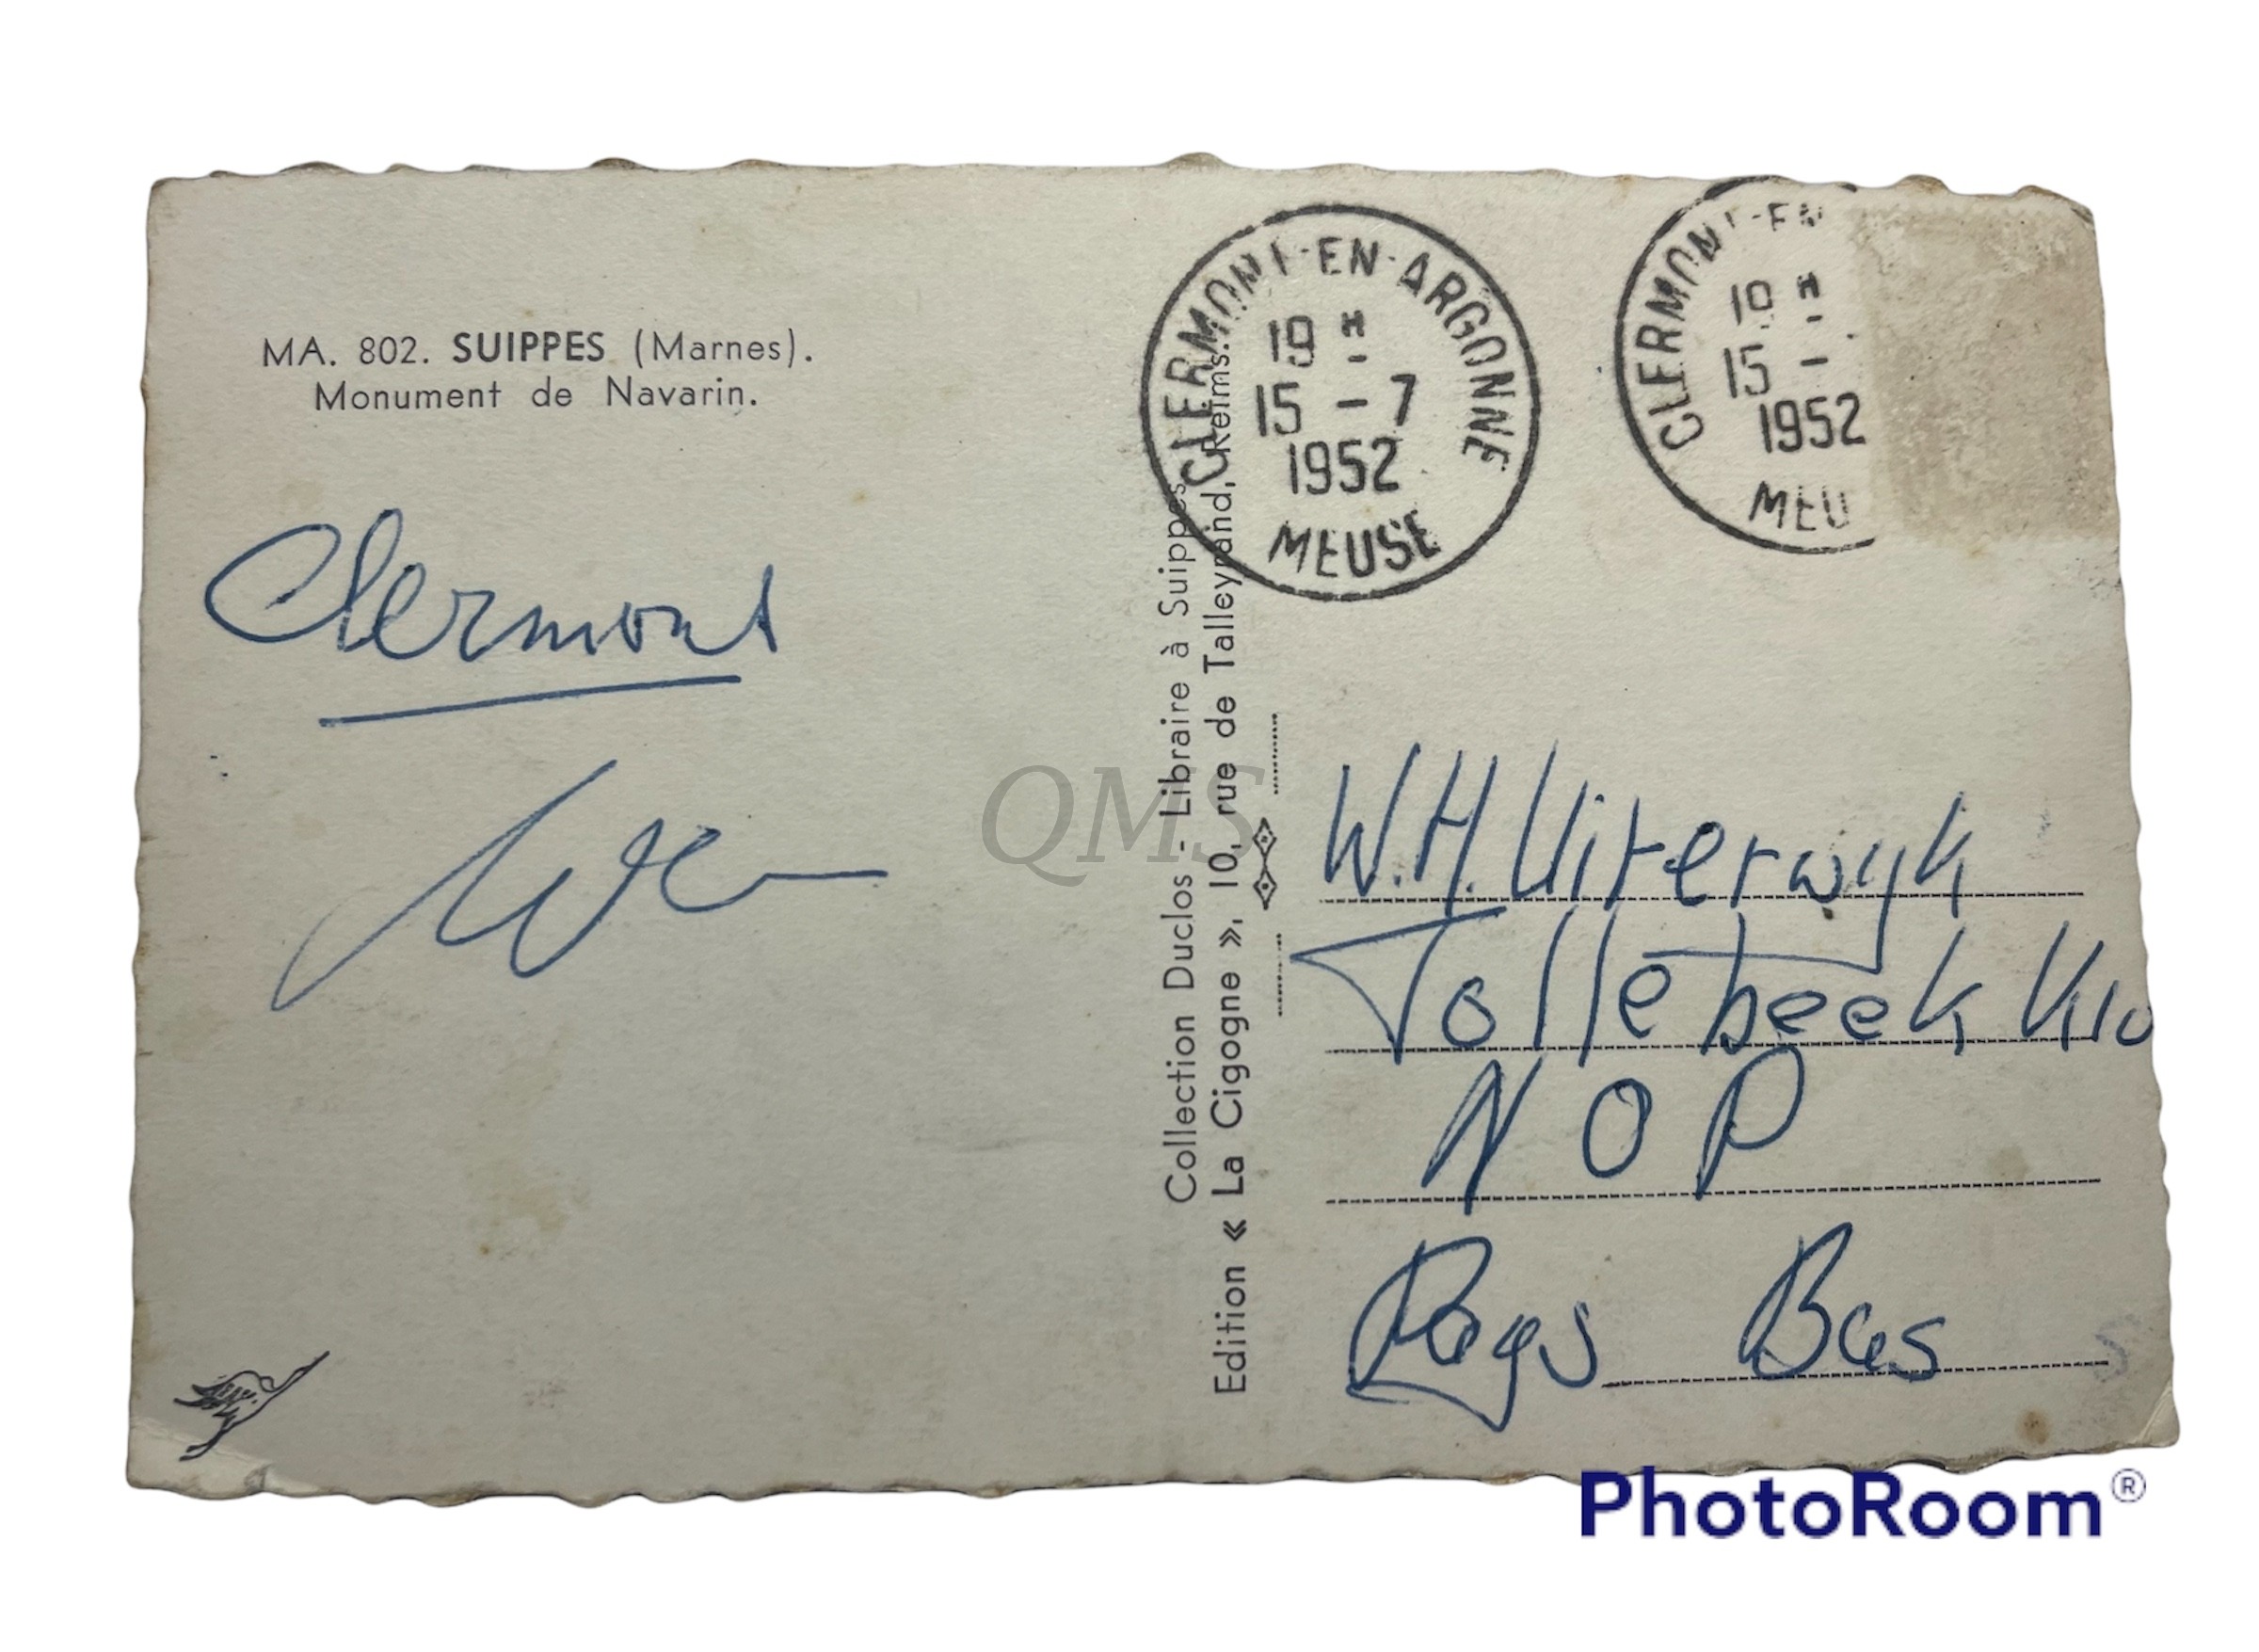 MA. 802. SUIPPES (Marnes).
Monument de Navarin.
Clermont
Collection Duclos - Libraire à Suippes.
Edition « La Cigogne », 10, rue de Talleyrand, Reims.
CLERMONT-EN-ARGONNE
19 H
15 - 7
1952
MEUSE
CLERMONT-EN
19 H
15 -
1952
MEU
QMS
W.H. Uiterwyk
Tollebeek
N O P
Pays Bas
PhotoRoom®